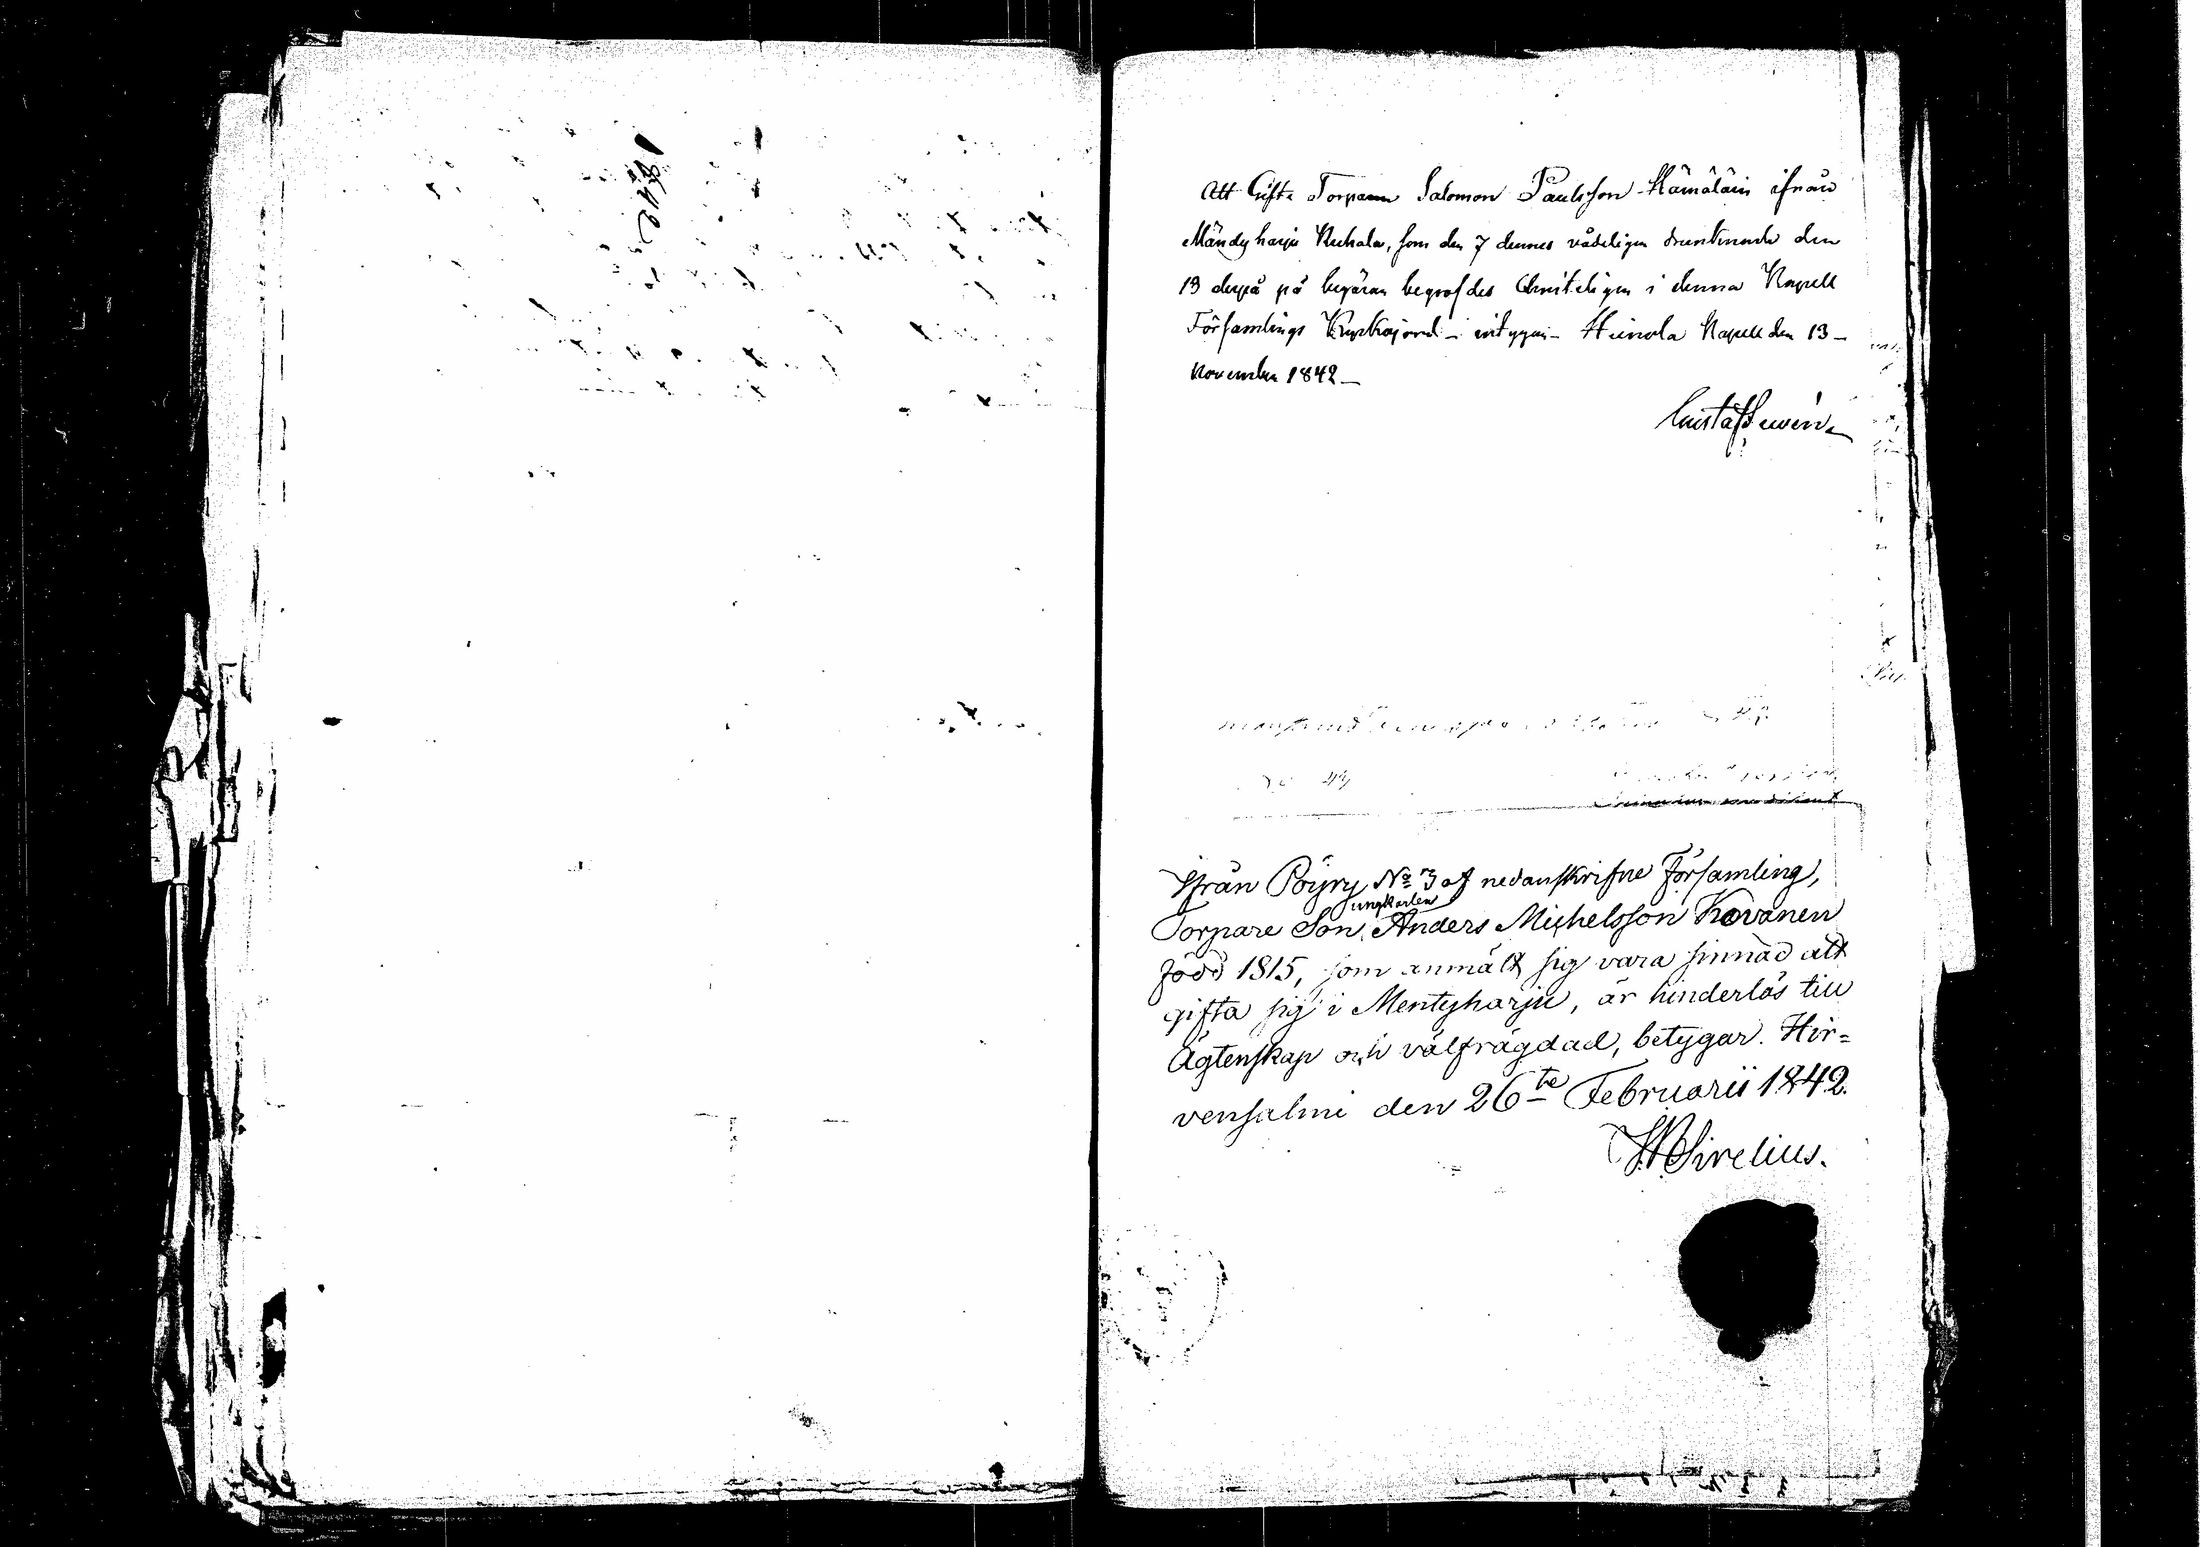 1842
Att Gifte Torparen Salomon Paulsson Hämäläin ifrån
Mändyharju Kuhala, som den 7 dennes vådeligen drunknade den
13 derpå på begäran begrofdes Christeligen i denna Kapell
Församlings Kyrkojord – intygar – Heinola Kapell den 13 –
November 1842 –
Gustaf
Ifrån Pöyry No 3 af nedanskrifne Församling,
ungkarlen
Torpare Son, Anders Michelsson Kovanen
född 1815, som anmält sig vara sinnad att
gifta sig i Mentyharju, är hinderlös till
Ägtenskap och välfrägdad, betygar. Hir=
vensalmi den 26te Februarii 1842.
Sirelius.